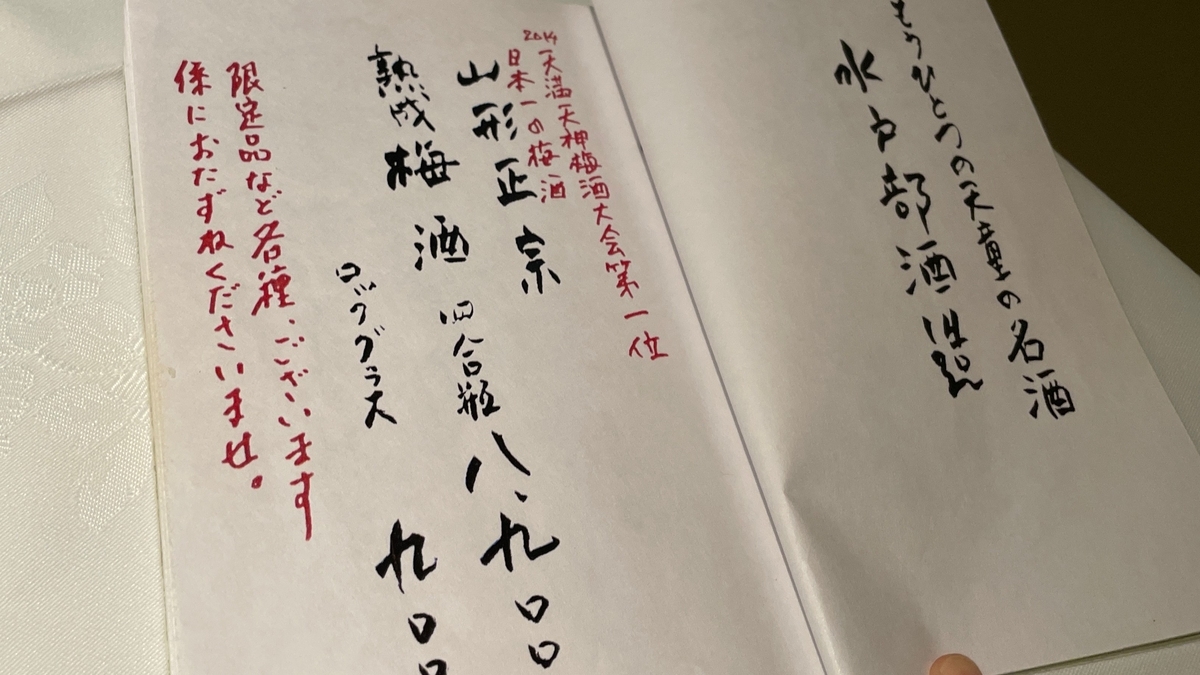 もうひとつの天童の名酒
水戸部酒
2014
天満天神梅酒大会第一位
日本一の梅酒
山形正宗
熟成梅酒
四合瓶 八、九〇〇
ロックグラス 九〇〇
限定品など各種、ございます
係におたずねくださいませ。